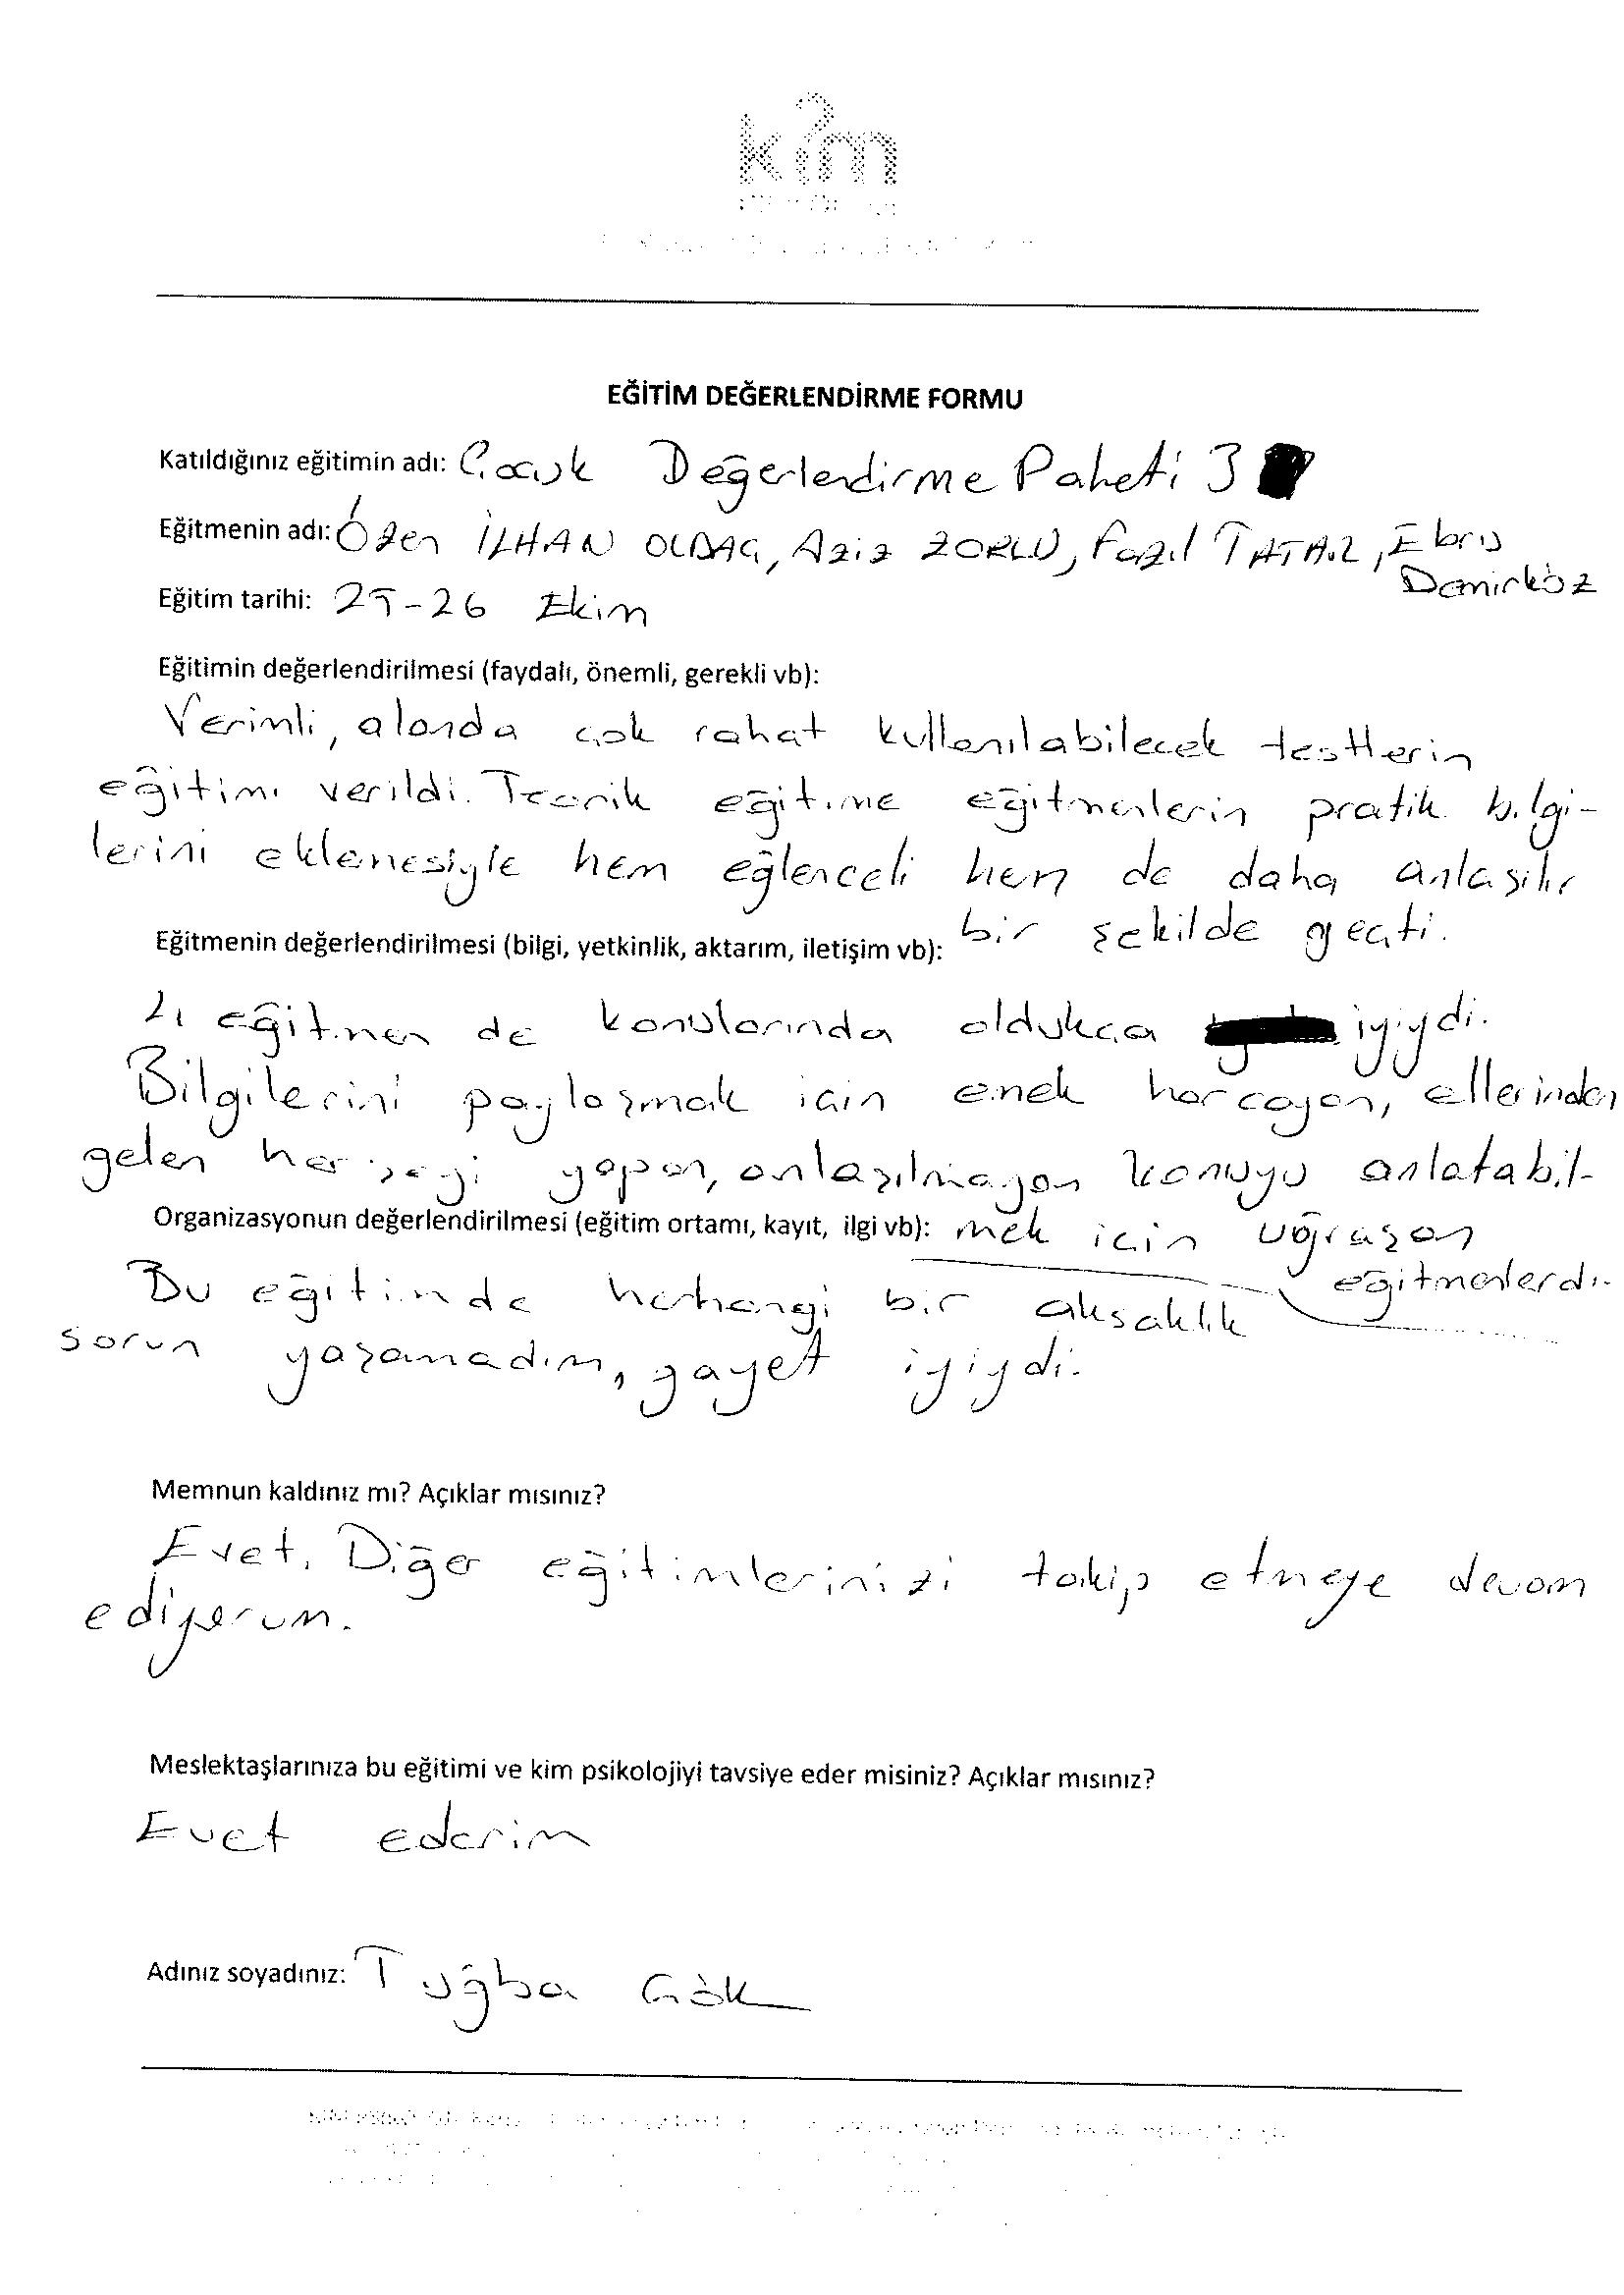 kim
EĞİTİM DEĞERLENDİRME FORMU
Katıldığınız eğitimin adı: Çocuk Değerlendirme Paketi 3
Eğitmenin adı: Özen İLHAN OLDAÇ, Aziz ZORLU, Fazıl TATAR, Ebru
Demirköz
Eğitim tarihi: 25-26 Ekim
Eğitimin değerlendirilmesi (faydalı, önemli, gerekli vb):
Verimli, alanda çok rahat kullanılabilecek testlerin
eğitimi verildi. Teorik eğitime eğitmenlerin pratik bilgi-
lerini eklemesiyle hem eğlenceli hem de daha anlaşılır
bir şekilde geçti.
Eğitmenin değerlendirilmesi (bilgi, yetkinlik, aktarım, iletişim vb):
4 eğitmen de konularında oldukça iyiydi.
Bilgilerini paylaşmak için emek harcayan, ellerinden
gelen her şeyi yapan, anlaşılmayan konuyu anlatabil-
mek için uğraşan
eğitmenlerdi.
Organizasyonun değerlendirilmesi (eğitim ortamı, kayıt, ilgi vb):
Bu eğitimde herhangi bir aksaklık
sorun yaşamadım, gayet iyiydi.
Memnun kaldınız mı? Açıklar mısınız?
Evet. Diğer eğitimlerinizi takip etmeye devam
ediyorum.
Meslektaşlarınıza bu eğitimi ve kim psikolojiyi tavsiye eder misiniz? Açıklar mısınız?
Evet ederim
Adınız soyadınız: Tuğba Gök